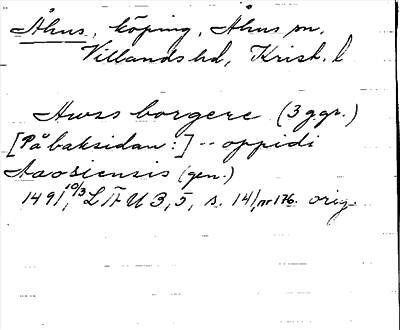 Åhus, köping, Åhus sn,
Villands hd, Krist. l
Awss borgere (3 ggr.)
[På baksidan:] -- oppidi
Aaosiensis (gen.)
1491 10/3 LÄU 3,5, s. 141, nr 176. orig.